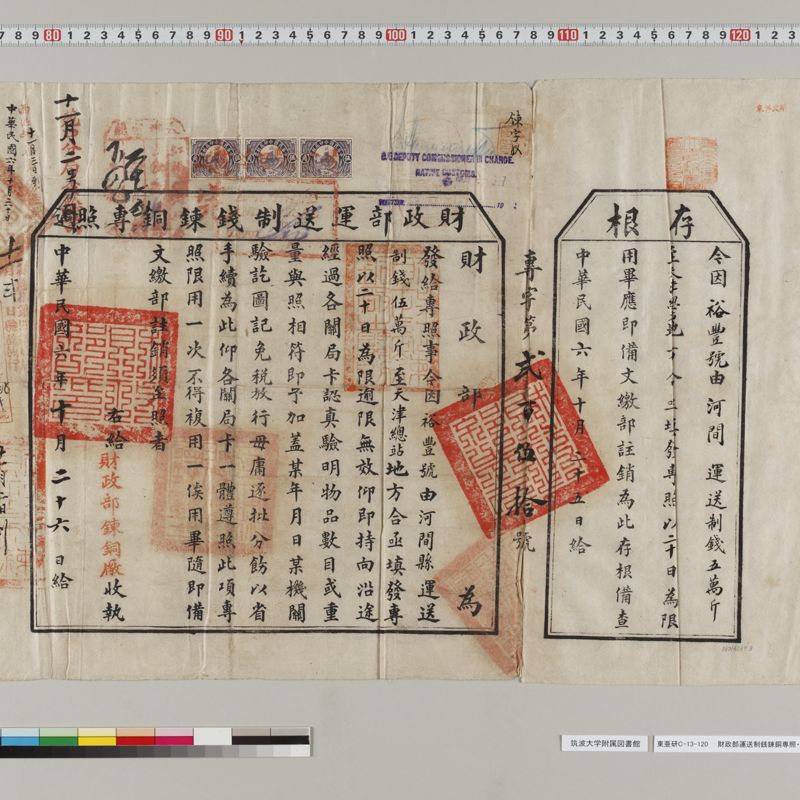 存根
令因裕豐號由河間運送制錢五萬斤
填發專照以二十日為限
用畢應即備文繳部註銷為此存根備查
中華民國六年十月二十五日給
專字第貳百伍拾號
財政部運送制錢鍊銅專照
財政部為
發給專照事令因裕豐號由河間縣運送
制錢伍萬斤至天津總站地方合亟填發專
照以二十日為限逾限無效仰即持向沿途
經過各關局卡認真驗明物品數目或重
量與照相符即予加蓋某年月日某機關
驗訖圖記免稅放行毋庸逐批分飭以省
手續為此仰各關局卡一體遵照此項專
照限用一次不得複用一俟用畢隨即備
文繳部註銷須至照者
右給財政部鍊銅廠收執
中華民國六年十月二十六日給
DEPUTY COMMISSIONER IN CHARGE.
NATIVE CUSTOMS.
十一月二号
中華民國六年十月三十日
筑波大学附属図書館
東亜研C-13-120 財政部運送制銭錬銅専照・